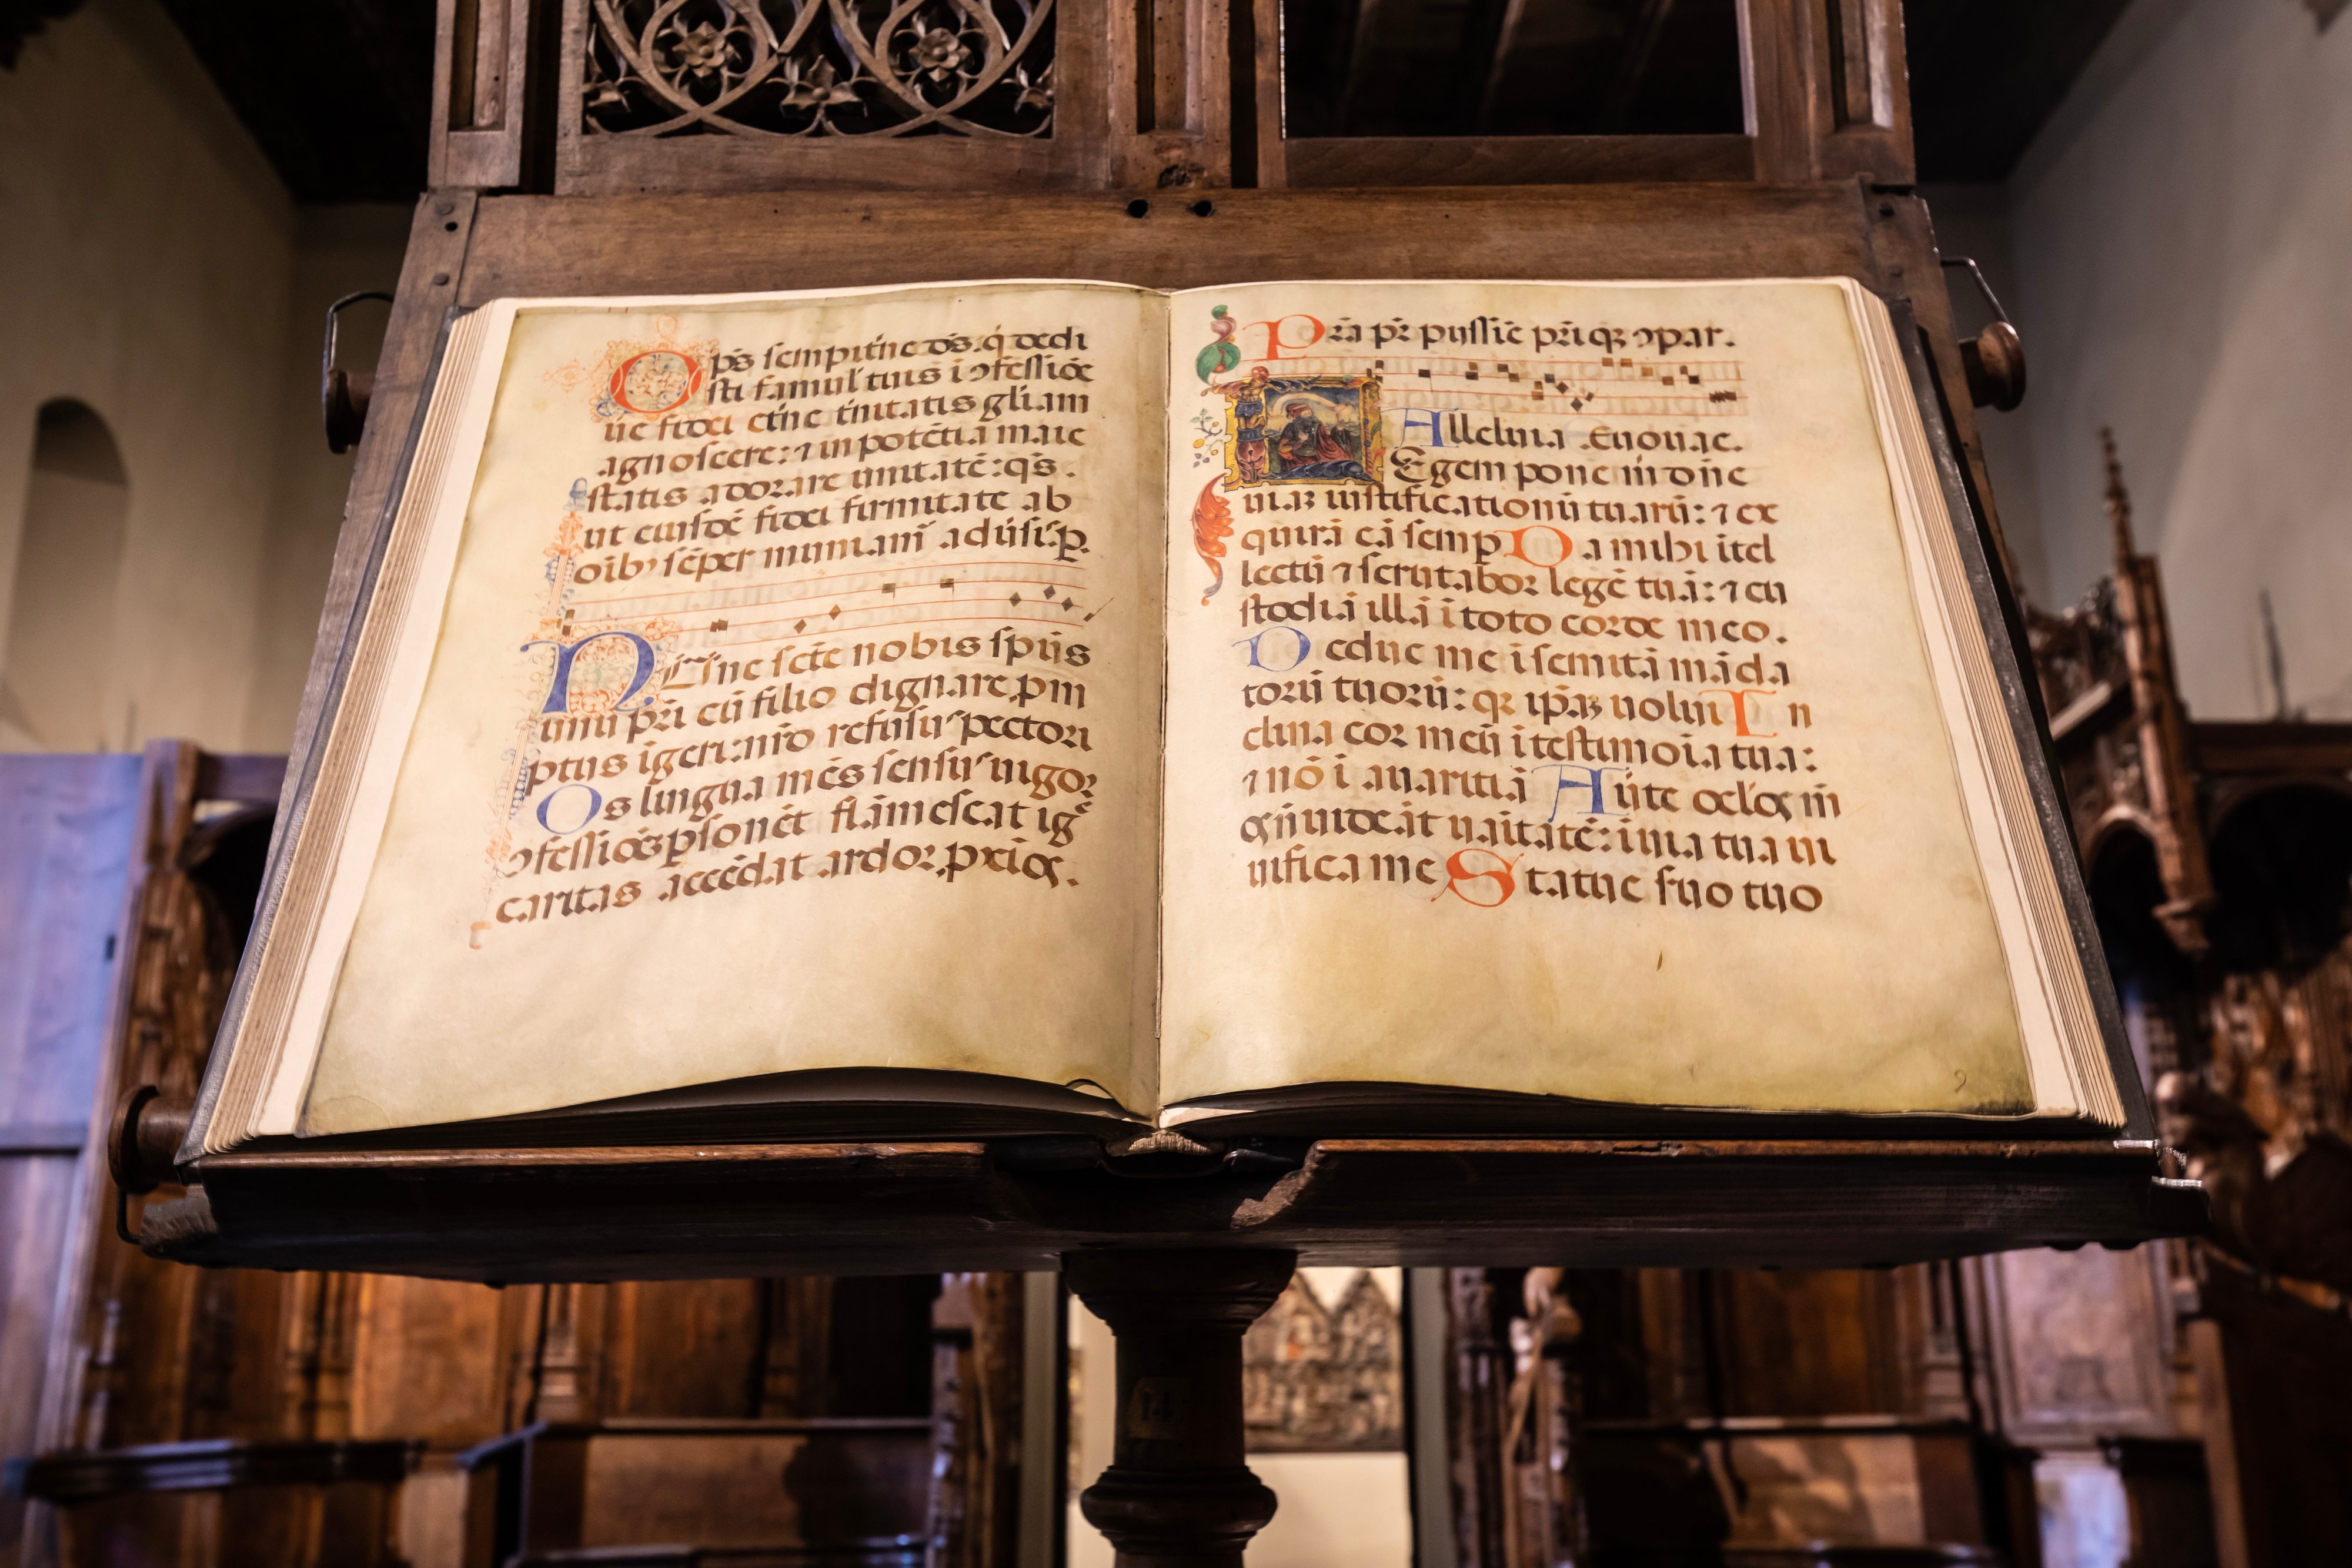 Ops̄ sempit'ne ds̄. q̇ dedi
sti famul' tuis i ɔfessiōe
ue fidei et'ne t'nitatis gliam
agnoscere: ⁊ in potētia maie
statis adorare unitatē: qs̄.
ut eiusdē fidei firmitate ab
oib' sēper muniam̄ adūsis.
Nunc scē nobis spūs
unū pr̄i cū filio dignare pm
ptus igeri: nr̄o refusus pectori
Os lingua mēs sensus uigor
ɔfessioēs psonēt flāmescat igē
caritas accēdat ardor pxios.
Pr̄a pr̄ pijssiē pr̄iqꝫ ɔpar.
Alleluia. Euouae.
Legem pone m̄ dn̄e
uiaꝫ iustificationū tuarū: ⁊ ex
quirā eā semp Da mihi ītel
lectū ⁊ scrutabor legē tuā: ⁊ cu
stodiā illā ī toto corde meo.
Deduc me ī semitā māda
torū tuorū: qꝛ ip̄aꝫ uolui In
clina cor meū ī testimoīa tua:
⁊ nō ī auaritiā Aūte oclos m̄
os n̄ uideāt uāitatē: ī uia tua ui
uifica me Statue suo tuo
14